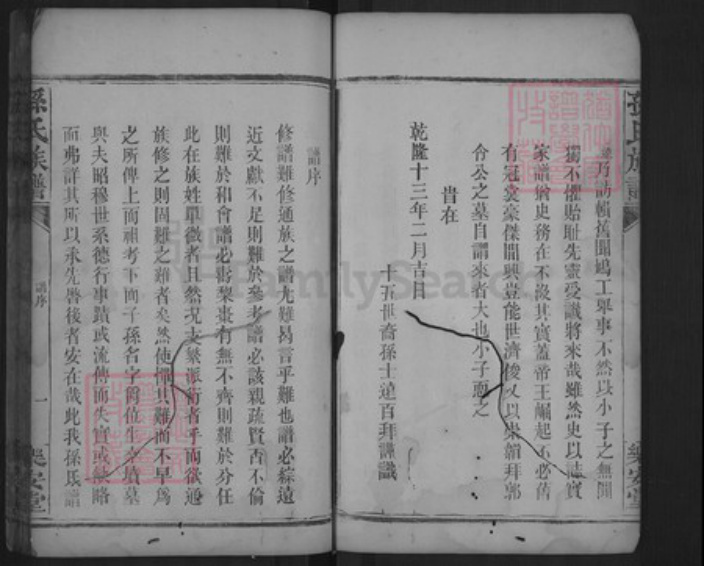 乃訪積舊聞鳩工舉事不然以小子之無聞
獨不懼貽耻先靈受譏將來哉雖然史以誌實
家譜猶史務在不沒其實蓋帝王崛起不必舊
有冠裳豪傑聞興豈能世濟俊乂以崇韜拜郭
令公之墓自謂來者大也小子慝之
旹在
乾隆十三年二月吉日
十五世裔孫士遠百拜謹識
譜序
修譜難修通族之譜尤難曷言乎難也譜必綜遠
近文獻不足則難於參考譜必該親疏賢否不倫
則難於和會譜必壽梨棗有無不齊則難於分任
此在族姓單微者且然况支繁派衍者乎而欲通
族修之則固難之難者矣然使憚其難而不早為
之所俾上而祖考下而子孫名字爵位生卒墳墓
與夫昭穆世系德行事蹟或流傳而失實或缺略
而弗詳其所以承先啓後者安在哉此我孫氏譜
孫氏族譜
譜序
一
樂安堂
孫氏族譜
樂安堂
FamilySearch